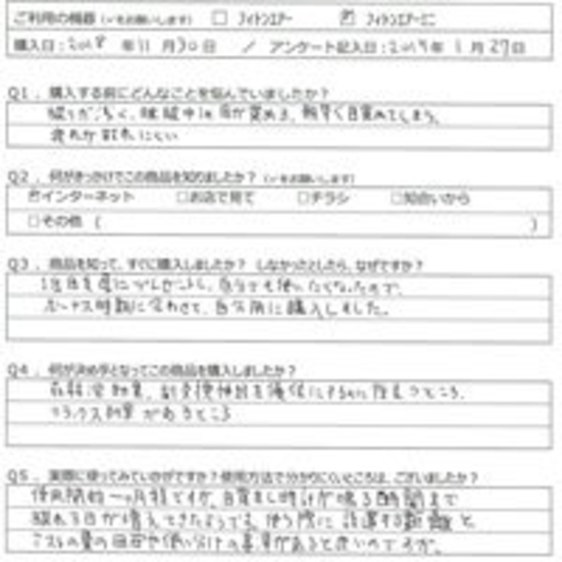 ご利用の機器（✓をお願いします） □ フィトンエアー ☑ フィトンエアーミニ
購入日：2018 年 11 月 30 日 ／ アンケート記入日：2019 年 1 月 27 日
Q1．購入する前にどんなことを悩んでいましたか？
眠りが浅く、睡眠中に目が覚める、朝早く目覚めてしまう。
疲れが取れにくい
Q2．何がきっかけでこの商品を知りましたか？（✓をお願いします）
☑インターネット □お店で見て □チラシ □知合いから
□その他（ ）
Q3．商品を知って、すぐに購入しましたか？ しなかったとしたら、なぜですか？
1台目を母にプレゼントし、自分でも使いたくなったので、
ボーナス時期に合わせて、自分用に購入しました。
Q4．何が決め手となってこの商品を購入しましたか？
副交感神経を優位にする
リラックス効果があるところ
Q5．実際に使ってみていかがですか？使用方法で分かりにくいところは、ございましたか？
使用開始一ヶ月程ですが、目覚まし時計が鳴る時間まで
眠れる日が増えてきたようです。使う際に設置する距離と
ミストの量の目安や使い分けの基準があると良いのですが。